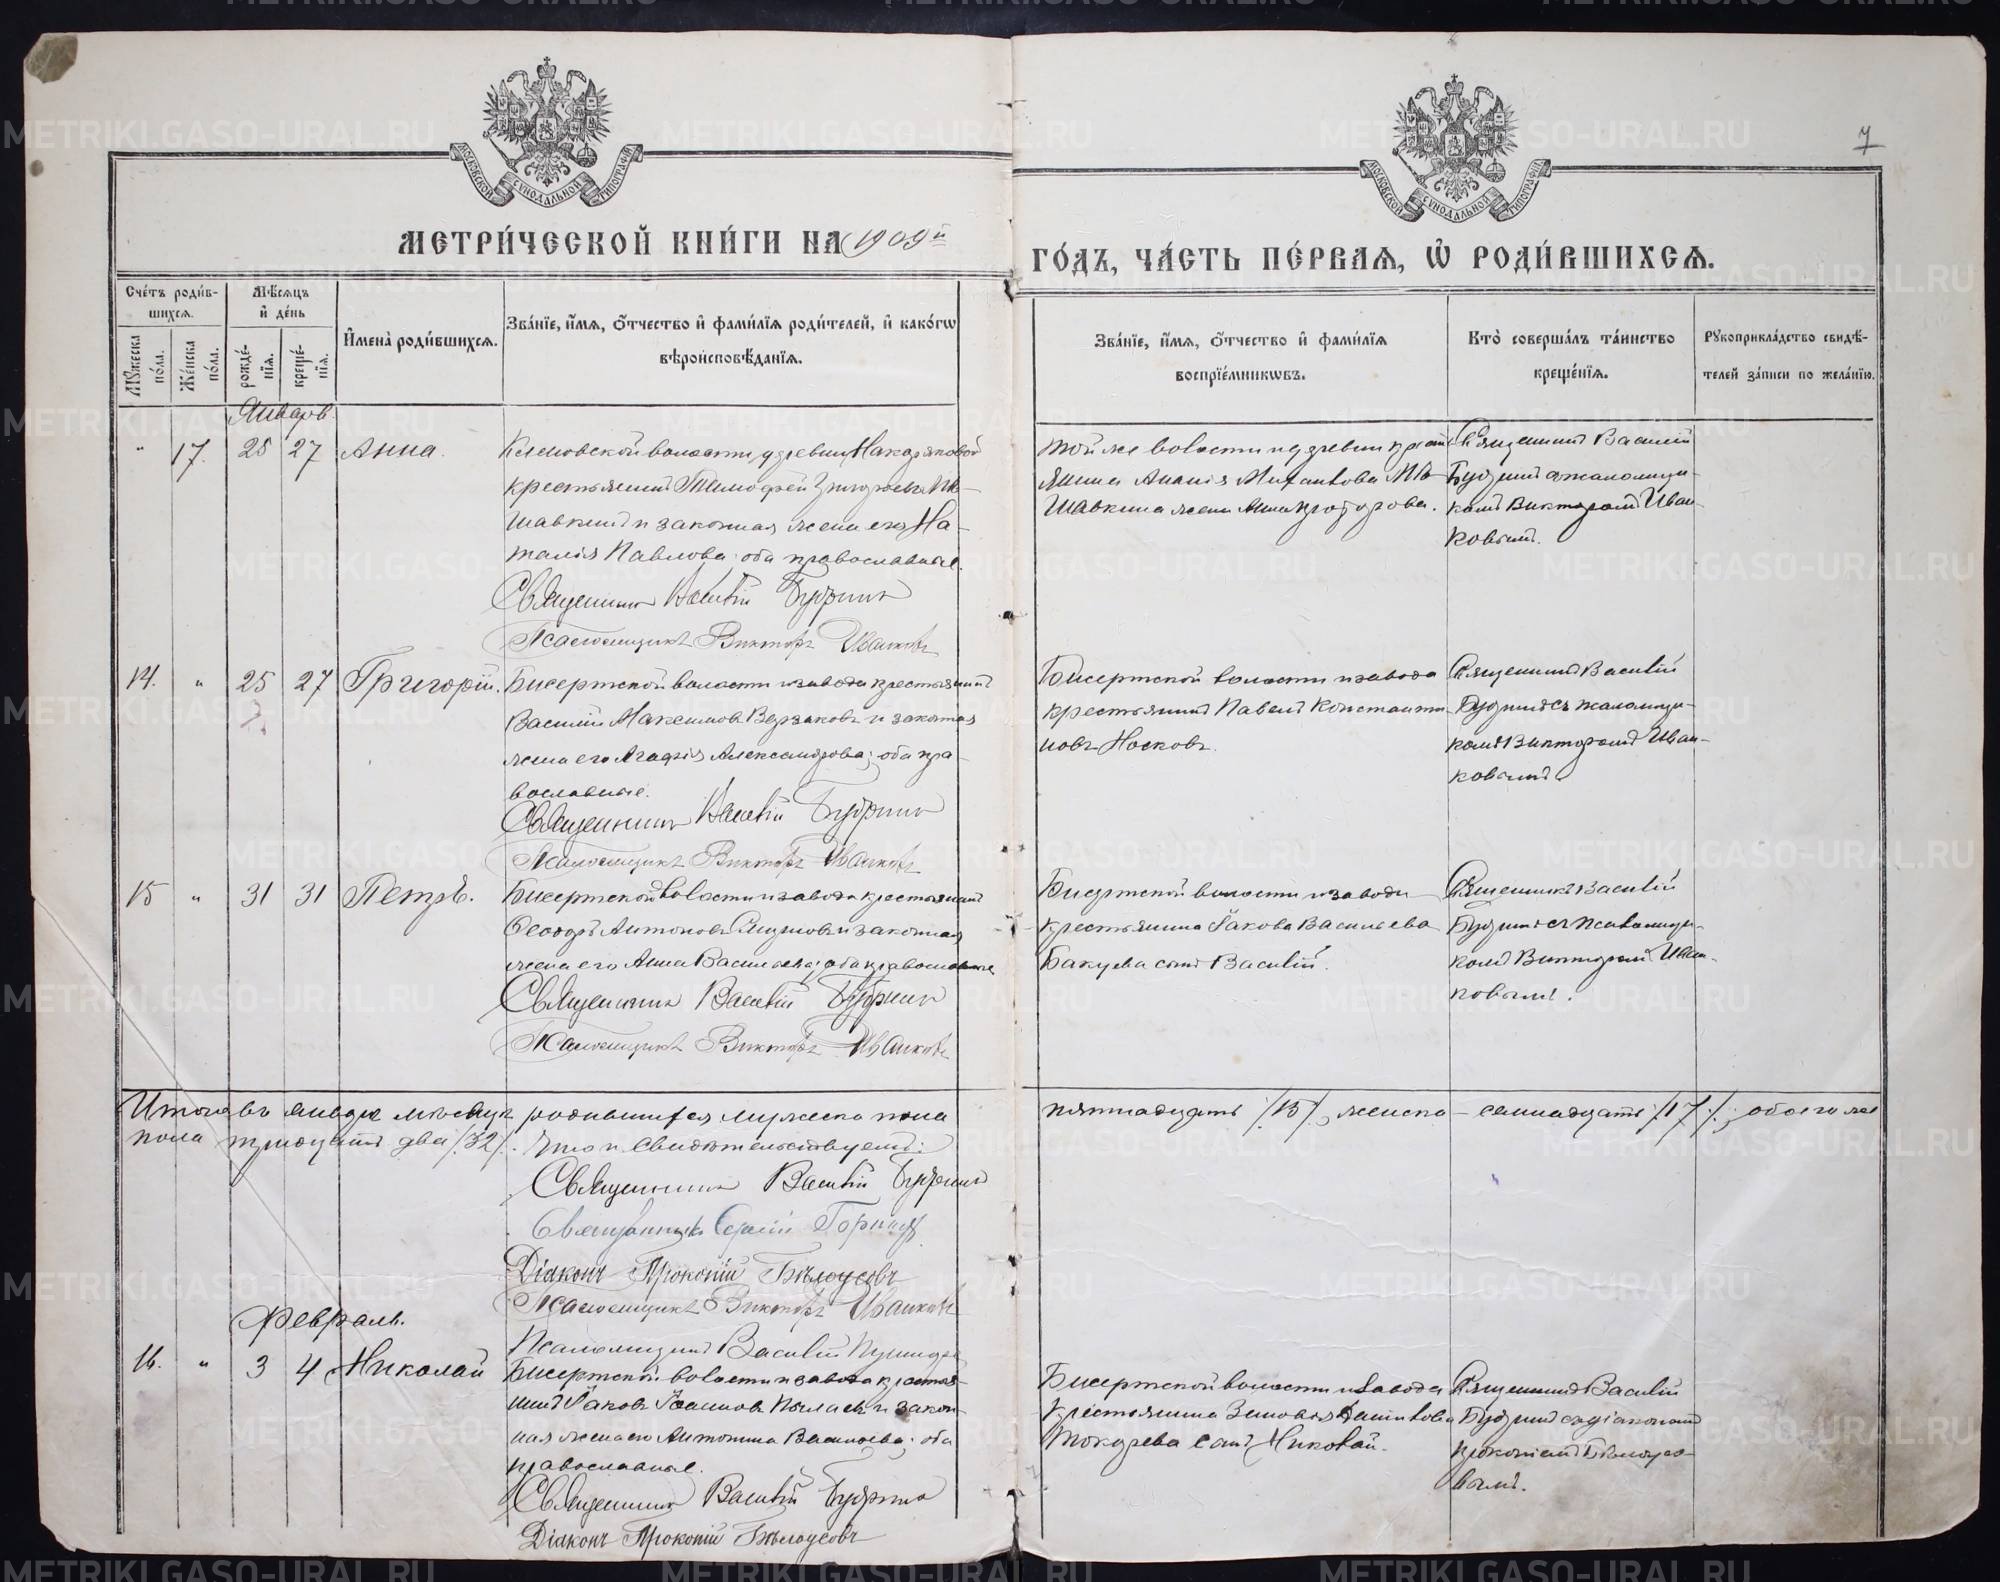 МЕТРИКИ.GASO-URAL.RU
МОСКОВСКОЙ СѴНОДАЛЬНОЙ ТИПОГРАФІИ
МОСКОВСКОЙ СѴНОДАЛЬНОЙ ТИПОГРАФІИ
7
МЕТРИ́ЧЕСКОЙ КНИ́ГИ НА 1909й
ГО́ДЪ, ЧА́СТЬ ПЕ́РВАЯ, Ѿ РОДИ́ВШИХСЯ.
Сче́тъ роди́в-
шихся.
Мѣ́сяцъ
и де́нь
Мꙋжеска по́ла.
Же́нска по́ла.
рожде́-
нїя.
креще́-
нїя.
Имена̀ роди́вшихся.
Зва́нїе, и́мя, о́тчество и фами́лїя роди́телей, и како́гѡ
вѣроисповѣ́данїя.
Зва́нїе, и́мя, о́тчество и фами́лїя
воспрїе́мникѡвъ.
Кто̀ соверша́лъ та́инство
креще́нїя.
Рꙋкоприкла́дство свидѣ́-
телей за́писи по жела́нїю.
Январь
" 17. 25 27 Анна.
Кленовской волости, деревни
крестьянинъ Тимофей Григорьевъ Пѣ-
шавкинъ и законная жена его На-
талія Павлова; оба православные.
Священникъ Василій
Псаломщикъ Викторъ Иванковъ
Той же волости и деревни крест-
янина
жена Анна
Священникъ Василій
псаломщи-
комъ Викторомъ Иван-
ковымъ.
14. " 25 27 Григорій.
Бисертской волости и завода крестьянинъ
Василій Максимовъ Верзаковъ и законная
жена его Агафія Александрова; оба пра-
вославные.
Священникъ Василій
Псаломщикъ Викторъ Иванковъ
Бисертской волости и завода
крестьянинъ Павелъ Константи-
новъ Носковъ.
Священникъ Василій
съ псаломщи-
комъ Викторомъ Иван-
ковымъ
15 " 31 31 Петръ.
Бисертской волости и завода крестьянинъ
Ѳеодоръ Антоновъ и законная
жена его Анна Васильева; оба православные
Священникъ Василій
Псаломщикъ Викторъ Иванковъ
Бисертской волости и завода
крестьянина Іакова Васильева
сынъ Василій.
Священникъ Василій
съ псаломщи-
комъ Викторомъ Иван-
ковымъ.
Итого въ январѣ мѣсяцѣ родившихся мужеска пола пятнадцать /15/, женска – семнадцать /17/; обоего же
пола тридцать два /32/. Что и свидѣтельствуемъ:
Священникъ Василій
Священникъ Сергій
Діаконъ Прокопій Бѣлоусовъ
Псаломщикъ Викторъ Иванковъ
Псаломщикъ Василій
Февраль.
16. " 3 4 Николай
Бисертской волости и завода крестья-
нинъ Іаковъ Іоанновъ и закон-
ная жена его Антонина Васильева; оба
православные.
Священникъ Василій
Діаконъ Прокопій Бѣлоусовъ
Бисертской волости и завода
крестьянина
Токарева сынъ Николай.
Священникъ Василій
съ діакономъ
Прокопіемъ Бѣлоусо-
вымъ.